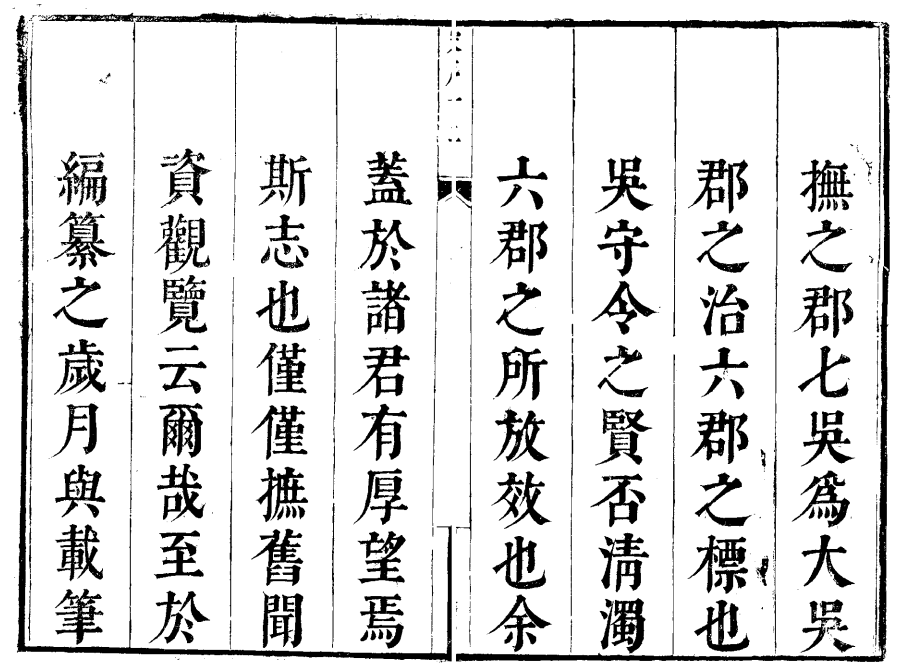 撫之郡七吳爲大吳
郡之治六郡之標也
吳守令之賢否清濁
六郡之所放效也余
蓋於諸君有厚望焉
斯志也僅僅摭舊聞
資觀覽云爾哉至於
編纂之歲月與載筆